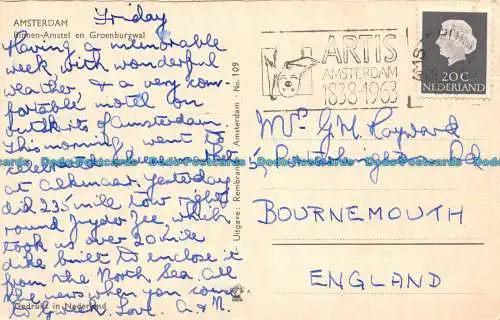 AMSTERDAM
Binnen-Amstel en Groenburgwal
Friday
Having a memorable
week with wonderful
weather, & a very com-
fortable motel on
outskirts of Amsterdam.
This morning went to
celebrated
at Alkmaar. Yesterday
did 235 mile tour right
round Zuyder Zee, which
took us over 20 mile
dike built to enclose it
from the North Sea. All
the news when you come
to Love. A & N.
Gedrukt in Nederland
Uitgave: Rembrandt Amsterdam - No. 109
ARTIS
AMSTERDAM
1838-1963
20 C
NEDERLAND
Mrs G.H. Hayward
5
BOURNEMOUTH
ENGLAND
Dodo-Postcards-Todocoleccion